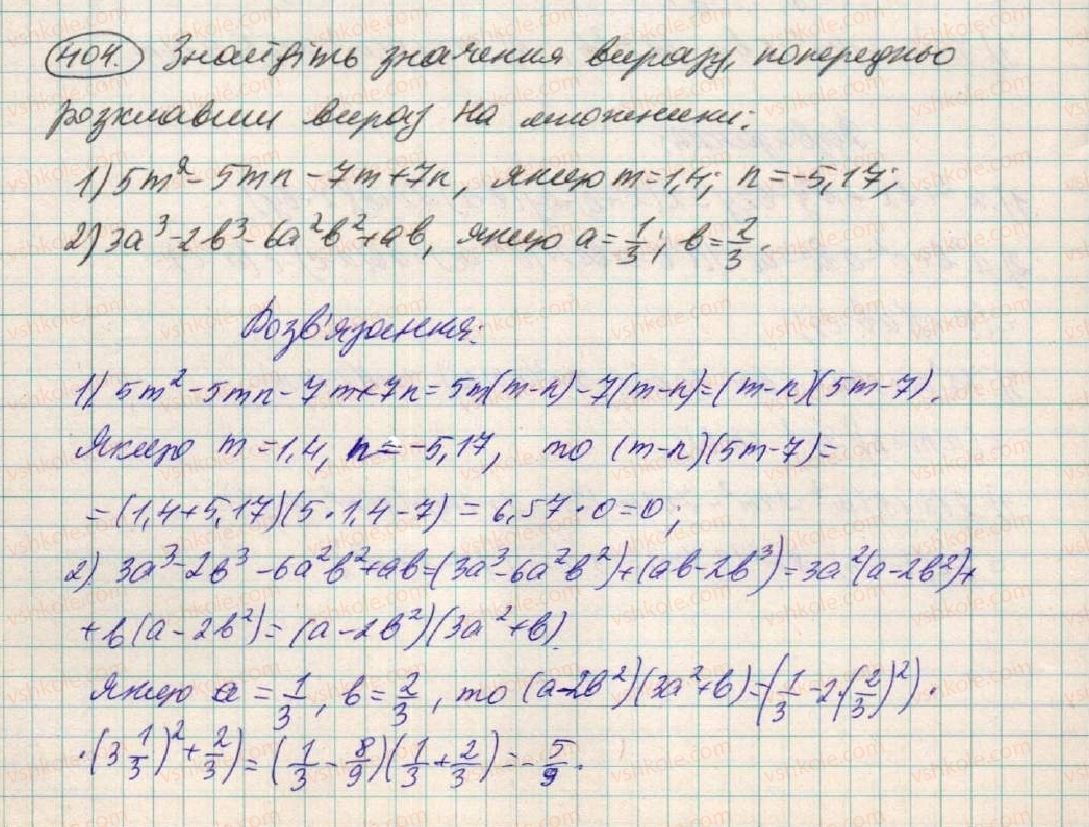 404. Знайдіть значення виразу, попередньо
розклавши вираз на множники:
1) 5m² - 5mn - 7m + 7n, якщо m = 1,4; n = -5,17;
2) 3a³ - 2b³ - 6a²b² + ab, якщо a = 1/3; b = 2/3.
Розв'язання:
1) 5m² - 5mn - 7m + 7n = 5m(m-n) - 7(m-n) = (m-n)(5m-7).
Якщо m = 1,4, n = -5,17, то (m-n)(5m-7) =
= (1,4 + 5,17)(5 · 1,4 - 7) = 6,57 · 0 = 0;
2) 3a³ - 2b³ - 6a²b² + ab = (3a³ - 6a²b²) + (ab - 2b³) = 3a²(a - 2b²) +
+ b(a - 2b²) = (a - 2b²)(3a² + b).
Якщо a = 1/3, b = 2/3, то (a - 2b²)(3a² + b) = (1/3 - 2·(2/3)²) ·
· (3 1/3)² + 2/3) = (1/3 - 8/9)(1/3 + 2/3) = -5/9.